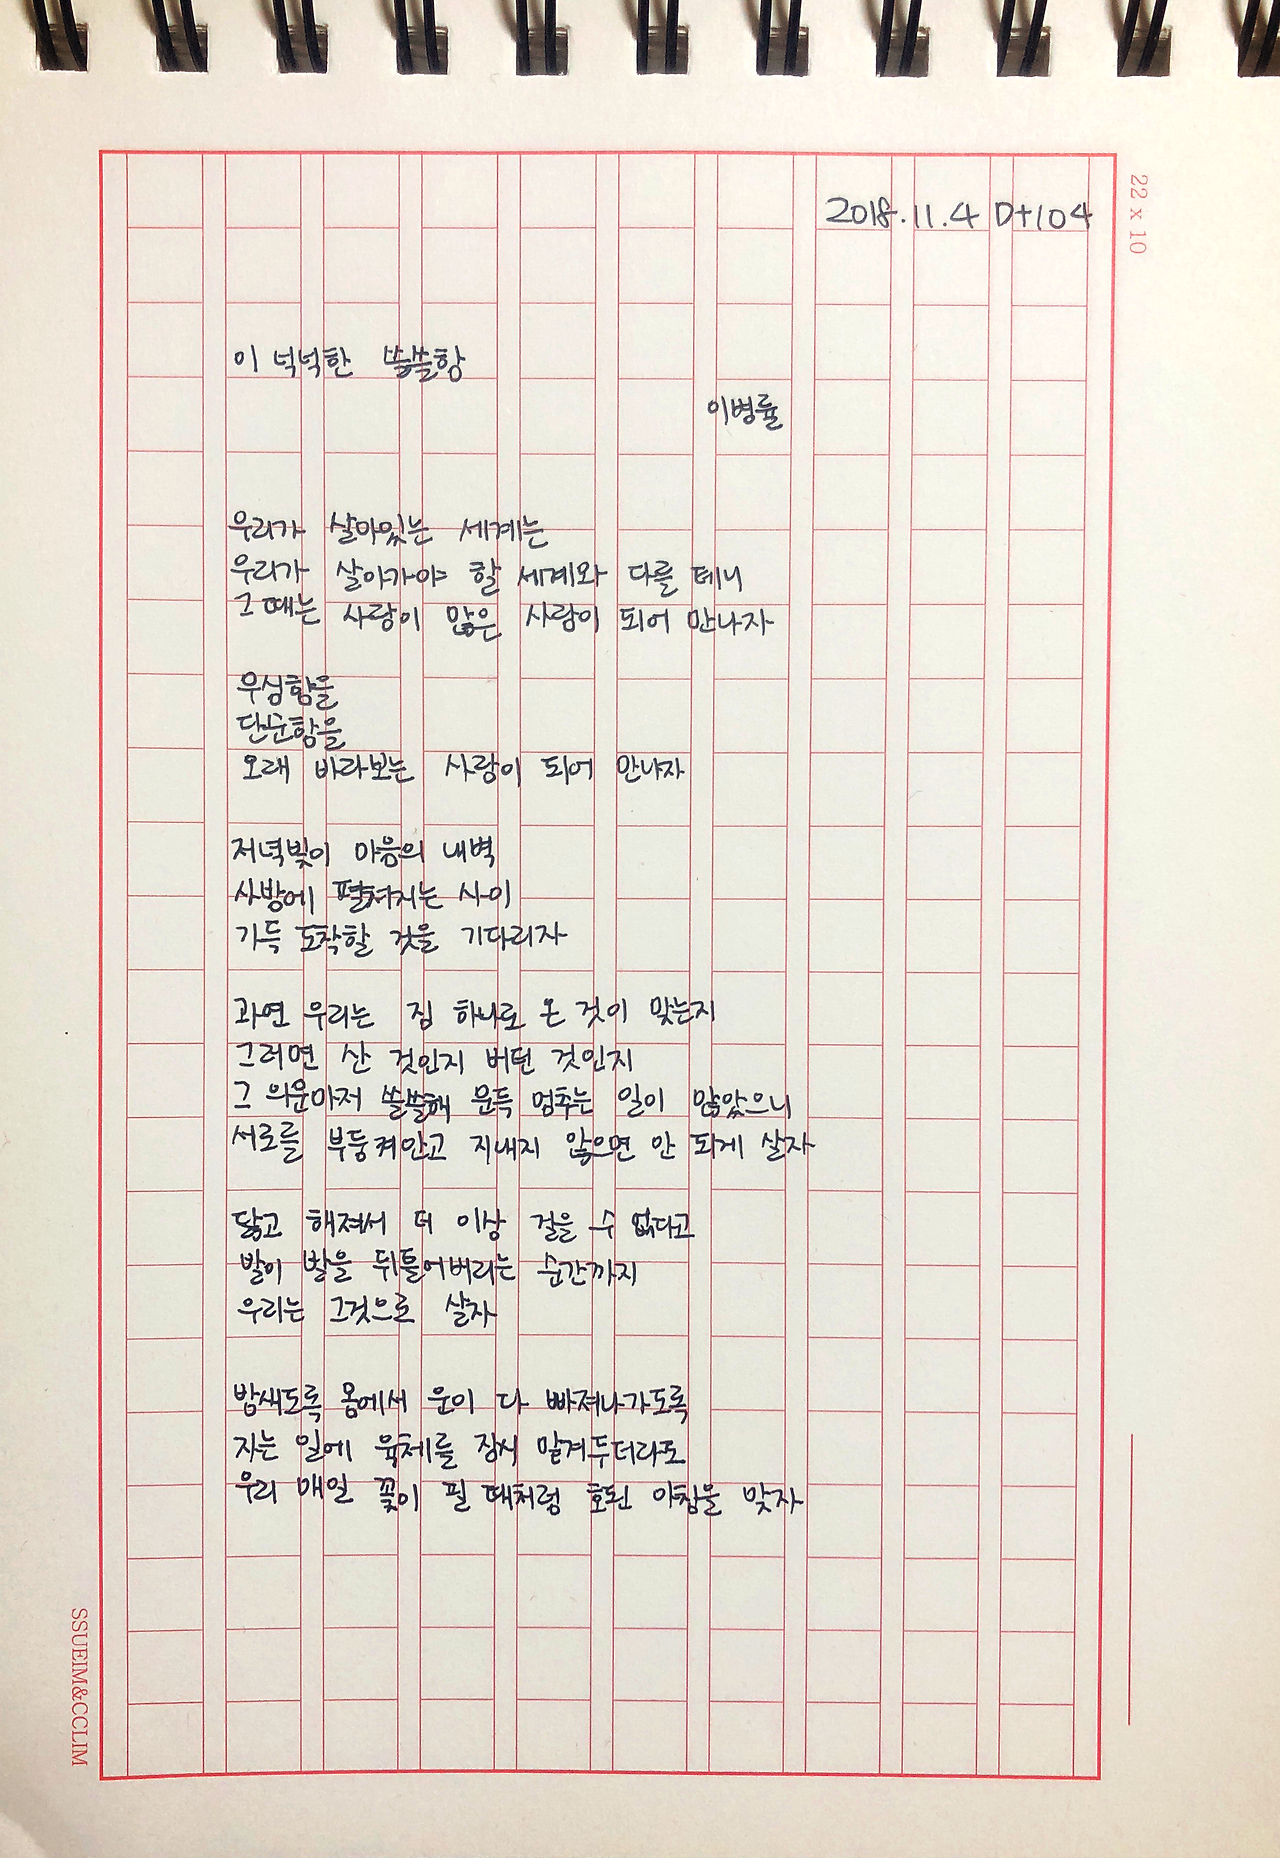 2018.11.4 D+104
22 x 10
이 넉넉한 쓸쓸함
이병률
우리가 살아있는 세계는
우리가 살아가야 할 세계와 다를 테니
그때는 사랑이 많은 사람이 되어 만나자
무심함을
단순함을
오래 바라보는 사람이 되어 만나자
저녁빛이 마음의 내벽
사방에 펼쳐지는 사이
가득 도착할 것을 기다리자
과연 우리는 점 하나로 온 것이 맞는지
그러면 산 것인지 버틴 것인지
그 의문마저 쓸쓸해 문득 멈추는 일이 많았으니
서로를 부둥켜안고 지내지 않으면 안 되게 살자
닳고 해져서 더 이상 걸을 수 없다고
발이 발을 뒤틀어버리는 순간까지
우리는 그것으로 살자
밤새도록 몸에서 운이 다 빠져나가도록
자는 일에 육체를 잠시 맡겨두더라도
우리 매일 꽃이 필 때처럼 호된 아침을 맞자
SSUEIM&CCLIM